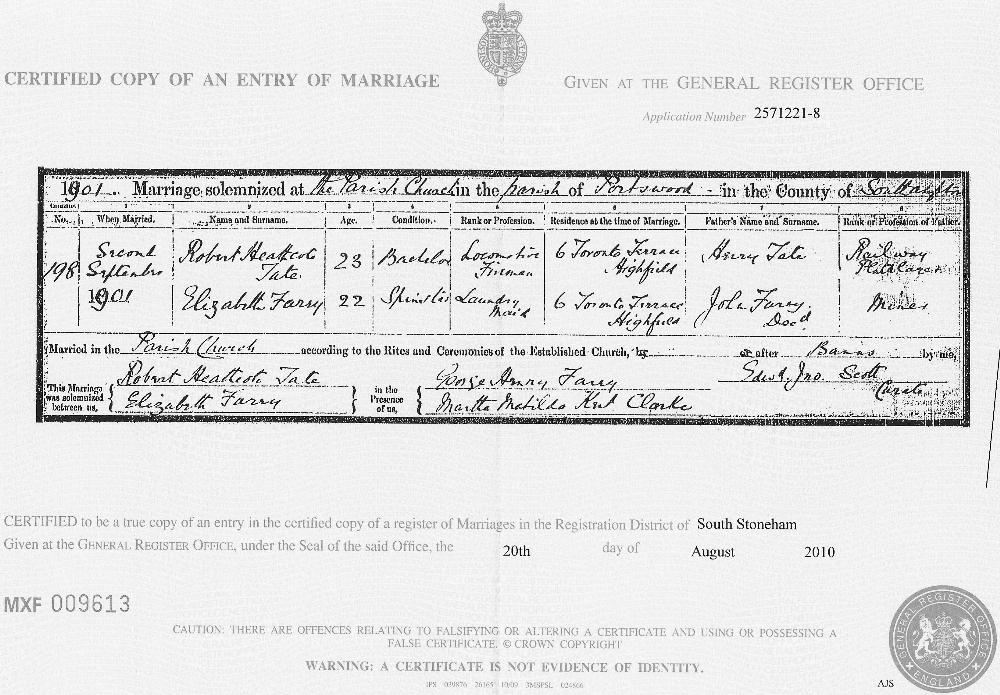 CERTIFIED COPY OF AN ENTRY OF MARRIAGE
GIVEN AT THE GENERAL REGISTER OFFICE
Application Number 2571221-8
1901 .. Marriage solemnized at the Parish Church in the Parish of Portswood - in the County of Southampton
1 2 3 4 5 6 7 8
No. When Married. Name and Surname. Age. Condition. Rank or Profession. Residence at the time of Marriage. Father's Name and Surname. Rank or Profession of Father.
198 Second Septembr 1901 Robert Heathcote Tate 23 Bachelor Locomotive Fireman 6 Toronto Terrace Highfield Henry Tate Railway Platelayer
Elizabeth Farry 22 Spinster Laundry Maid 6 Toronto Terrace Highfield John Farry Decd Miner
Married in the Parish Church according to the Rites and Ceremonies of the Established Church, by or after Banns by me,
This Marriage was solemnized between us, { Robert Heathcote Tate } in the Presence of us, { George Henry Farry Edwd. Jno. Scott
Elizabeth Farry Martha Matilda Clarke Curate
CERTIFIED to be a true copy of an entry in the certified copy of a register of Marriages in the Registration District of South Stoneham
Given at the GENERAL REGISTER OFFICE, under the Seal of the said Office, the 20th day of August 2010
MXF 009613
CAUTION: THERE ARE OFFENCES RELATING TO FALSIFYING OR ALTERING A CERTIFICATE AND USING OR POSSESSING A
FALSE CERTIFICATE. © CROWN COPYRIGHT
WARNING: A CERTIFICATE IS NOT EVIDENCE OF IDENTITY.
GENERAL REGISTER OFFICE
ENGLAND
AJS